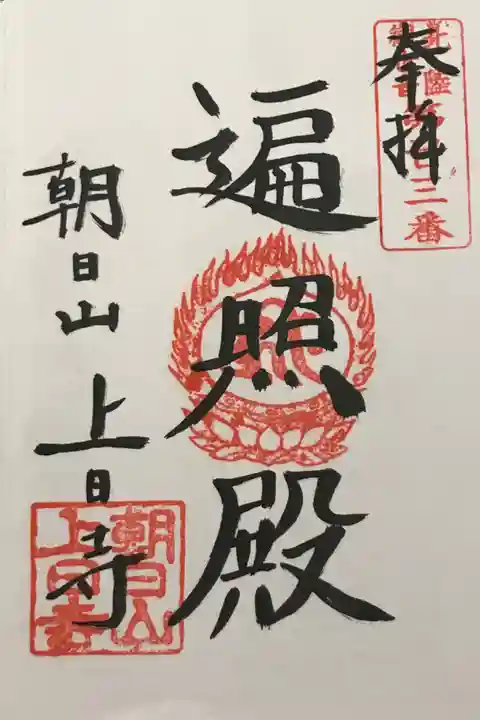 奉拝
遍照殿
朝日山 上日寺
朝日山
上日寺